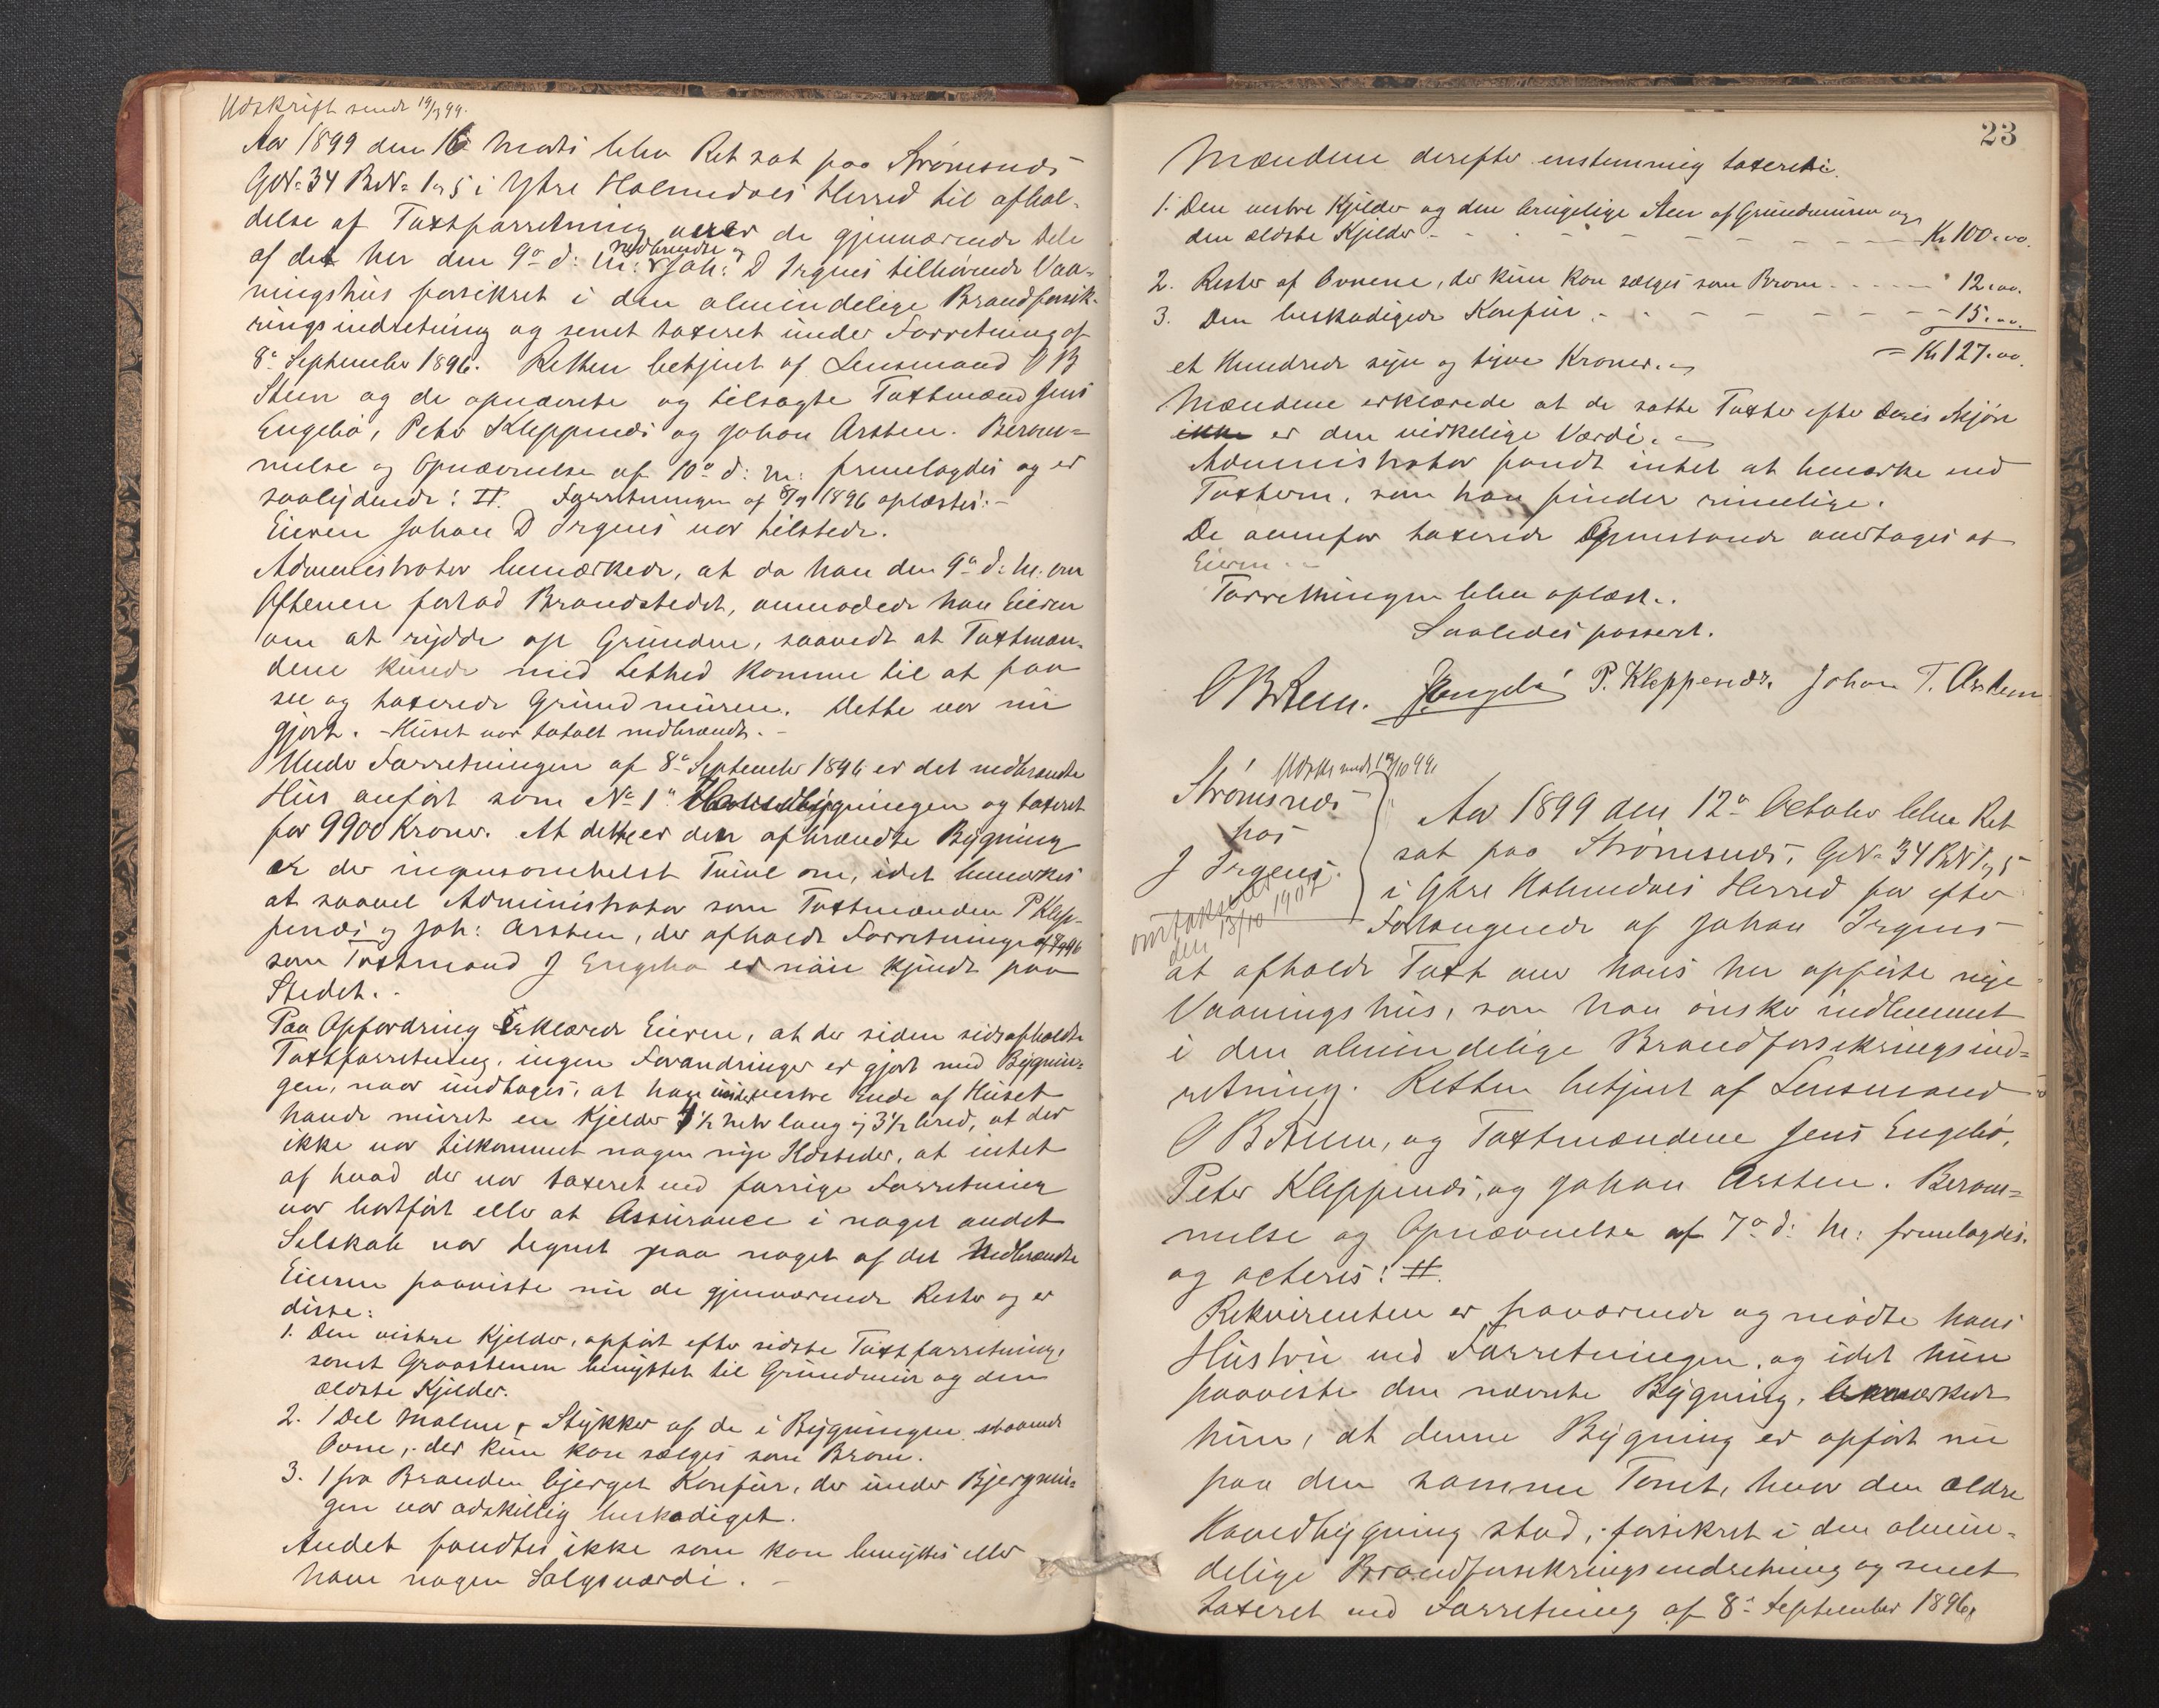 Udskrift sendt 19/3 99.
Aar 1899 den 16 Marts blev Ret sat paa Strømsnæs
GNo 34 BNo 1 og 5 i Ytre Holmedals Herred til afhol-
delse af Taxtforretning over de gjenværende Dele
af det her den 9de d: M: nedbrændte og Joh: D Irgens tilhørende Vaa-
ningshus forsikret i den almindelige Brandforsik-
ringsindretning og senest taxeret under Forretning af
8de September 1896. Retten betjent af Lensmand O B
Steen og de opnævnte og tilsagte Taxtmænd Jens
Engebø, Peter Kleppenæs og Johan Arstein. Beram-
melse og Opnævnelse af 10de d: M: fremlagdes og er
saalydende: #. Forretningen af 8/9 1896 oplæstes. -
Eieren Johan D Irgens var tilstede.
Administrator bemærkede, at da han den 9de d: M: om
Aftenen forlod Brandstedet, anmodede han Eieren
om at rydde op Grunden, saavidt at Taxtmæn-
dene kunde med Lethed komme til at paa
see og taxerede Grundmuren. Dette var nu
gjort. - Huset var totalt nedbrændt. -
Under Forretningen af 8de September 1896 er det nedbrændte
Hus anført som No 1 "Hovedbygningen og taxeret
for 9900 Kroner. At dette er den afbrændte Bygning
er der ingensomhelst Tvivl om, idet bemærkes
at saavel Administrator som Taxtmændene P Klep-
penæs og Joh: Arstein, der afholdt Forretning af 8/9 96
som Taxtmand J Engebø er nøie kjendt paa
Stedet. -
Paa Opfordring erklærede Eieren, at der siden sidst afholdte
Taxtforretning, ingen Forandringer er gjort med Bygnin-
gen, naar undtages, at han under vestre Ende af Huset
havde muret en Kjelder 4 1/2 Meter lang og 3 1/2 bred, at der
ikke var tilkommet nogen nye Ildsteder, at intet
af hvad der var taxeret ved forrige Forretning
var bortført eller at Assurance i noget andet
Selskab var tegnet paa noget af det Nedbrændte
Eieren paaviste nu de gjenværende Rester og er
disse:
1. Den vestre Kjelder, opført efter sidste Taxtforretning,
samt Graastenen benyttet til Grundmur og den
ældste Kjelder.
2. 1 Del Malm, Stykker af de i Bygningen staaende
Ovne, der kun kan sælges som Brom.
3. 1 fra Branden bjerget Komfur, der under Bjergnin-
gen var adskillig beskadiget.
Andet fandtes ikke som kan benyttes eller
have nogen Salgsværdi. -
23
Mændene derefter enstemmig taxerte.
1. Den vestre Kjelder og den brugelige Sten af Grundmuren og
den ældste Kjelder - - - - - Kr 100.00.
2. Rester af Ovnene, der kun kan sælges som Brom - - - " 12.00.
3. Den beskadigede Komfur - - - - - " 15.00.
et Hundrede syv og tyve Kroner. = Kr 127.00.
Mændene erklærede at de satte Taxter efter deres Skjøn
ikke er den virkelige Værdi.
Administrator fandt intet at bemærke ved
Taxterne, som han finder rimelige.
De ovenfor taxerede Gjenstande overtages af
Eieren. -
Forretningen blev oplæst.
Saaledes passeret.
O B Steen. J Engebø P. Kleppenæs. Johan T. Arstein
Udskr sendt 19/10 99
Strømsnæs
hos
J Irgens.
omtakseret
den 13/10 1907
Aar 1899 den 12te October blev Ret
sat paa Strømsnæs, GNo 34 BNo 1 og 5
i Ytre Holmedals Herred for efter
Forlangende af Johan Irgens
at afholde Taxt over hans her opførte nye
Vaaningshus, som han ønsker indlemmet
i den almindelige Brandforsikringsind-
retning. Retten betjent af Lensmand
O B Steen, og Taxtmændene Jens Engebø,
Peter Kleppenæs, og Johan Arstein. Beram-
melse og Opnævnelse af 7de d: M: fremlagdes.
og acteres: #.
Rekvirenten er fraværende og mødte hans
Hustru ved Forretningen, og idet hun
paaviste den nævnte Bygning, bemærkede
hun, at denne Bygning er opført nu
paa den samme Tomt, hvor den ældre
Hovedbygning stod, forsikret i den almin-
delige Brandforsikringsindretning og senest
taxeret ved Forretning af 8de September 1896,